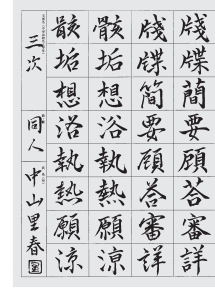 牋牒簡要顧答審詳
牋牒簡要顧答審詳
骸垢想浴執熱願涼
骸垢想浴執熱願涼
三次
同人
中山里春